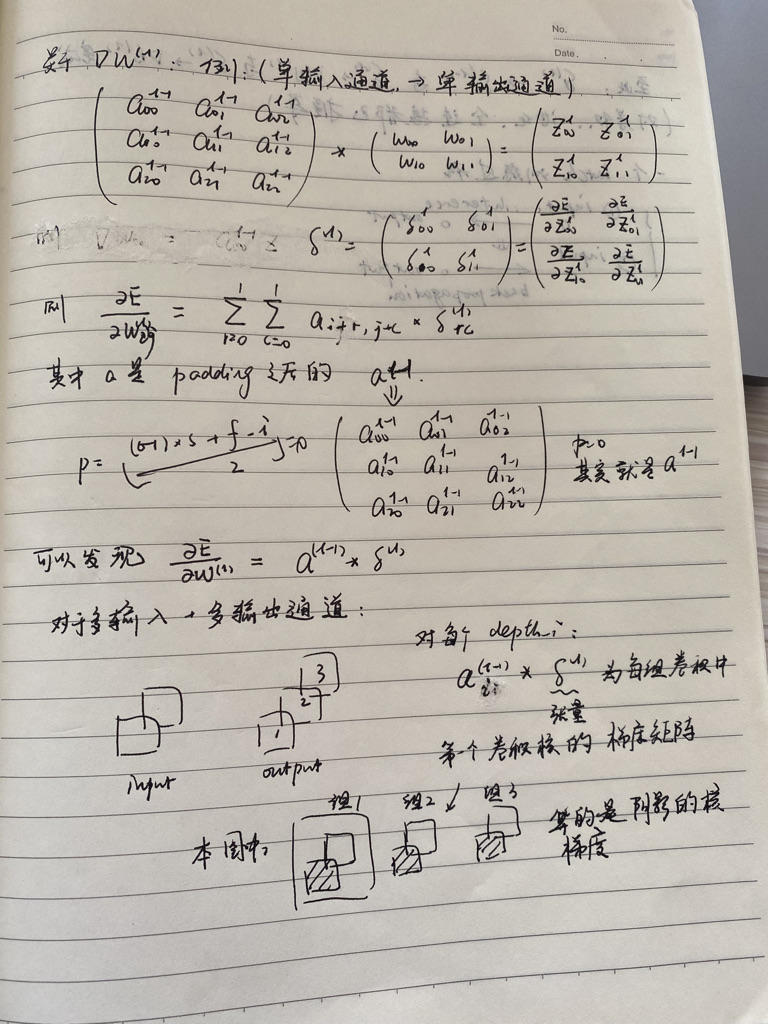 No.
Date.
关于 ∇W^(l): 例:(单输入通道 → 单输出通道)
( a00^l-1 a01^l-1 a02^l-1 ; a10^l-1 a11^l-1 a12^l-1 ; a20^l-1 a21^l-1 a22^l-1 ) * ( w00 w01 ; w10 w11 ) = ( Z00^l Z01^l ; Z10^l Z11^l )
δ^(l) = ( δ00^l δ01^l ; δ00^l δ11^l ) = ( ∂E/∂Z00^l ∂E/∂Z01^l ; ∂E/∂Z10^l ∂E/∂Z11^l )
则 ∂E/∂W^(l)ij = Σ(r=0→1) Σ(c=0→1) a i+r, j+c * δrc^(l)
其中 a 是 padding 之后的 a^l-1.
⇓
P = ((o-1)×s + f - i)/2 = 0 ( a00^l-1 a01^l-1 a02^l-1 ; a10^l-1 a11^l-1 a12^l-1 ; a20^l-1 a21^l-1 a22^l-1 ) p=0
其实就是 a^l-1
可以发现 ∂E/∂W^(l) = a^(l-1) * δ^(l)
对于多输入 → 多输出通道:
对每个 depth i:
a^(l-1) i * δ^(l) 为每组卷积中
张量
第一个卷积核的梯度矩阵
input
1 2 3
output
本图中,
组1 组2 组3
算的是阴影的核
梯度